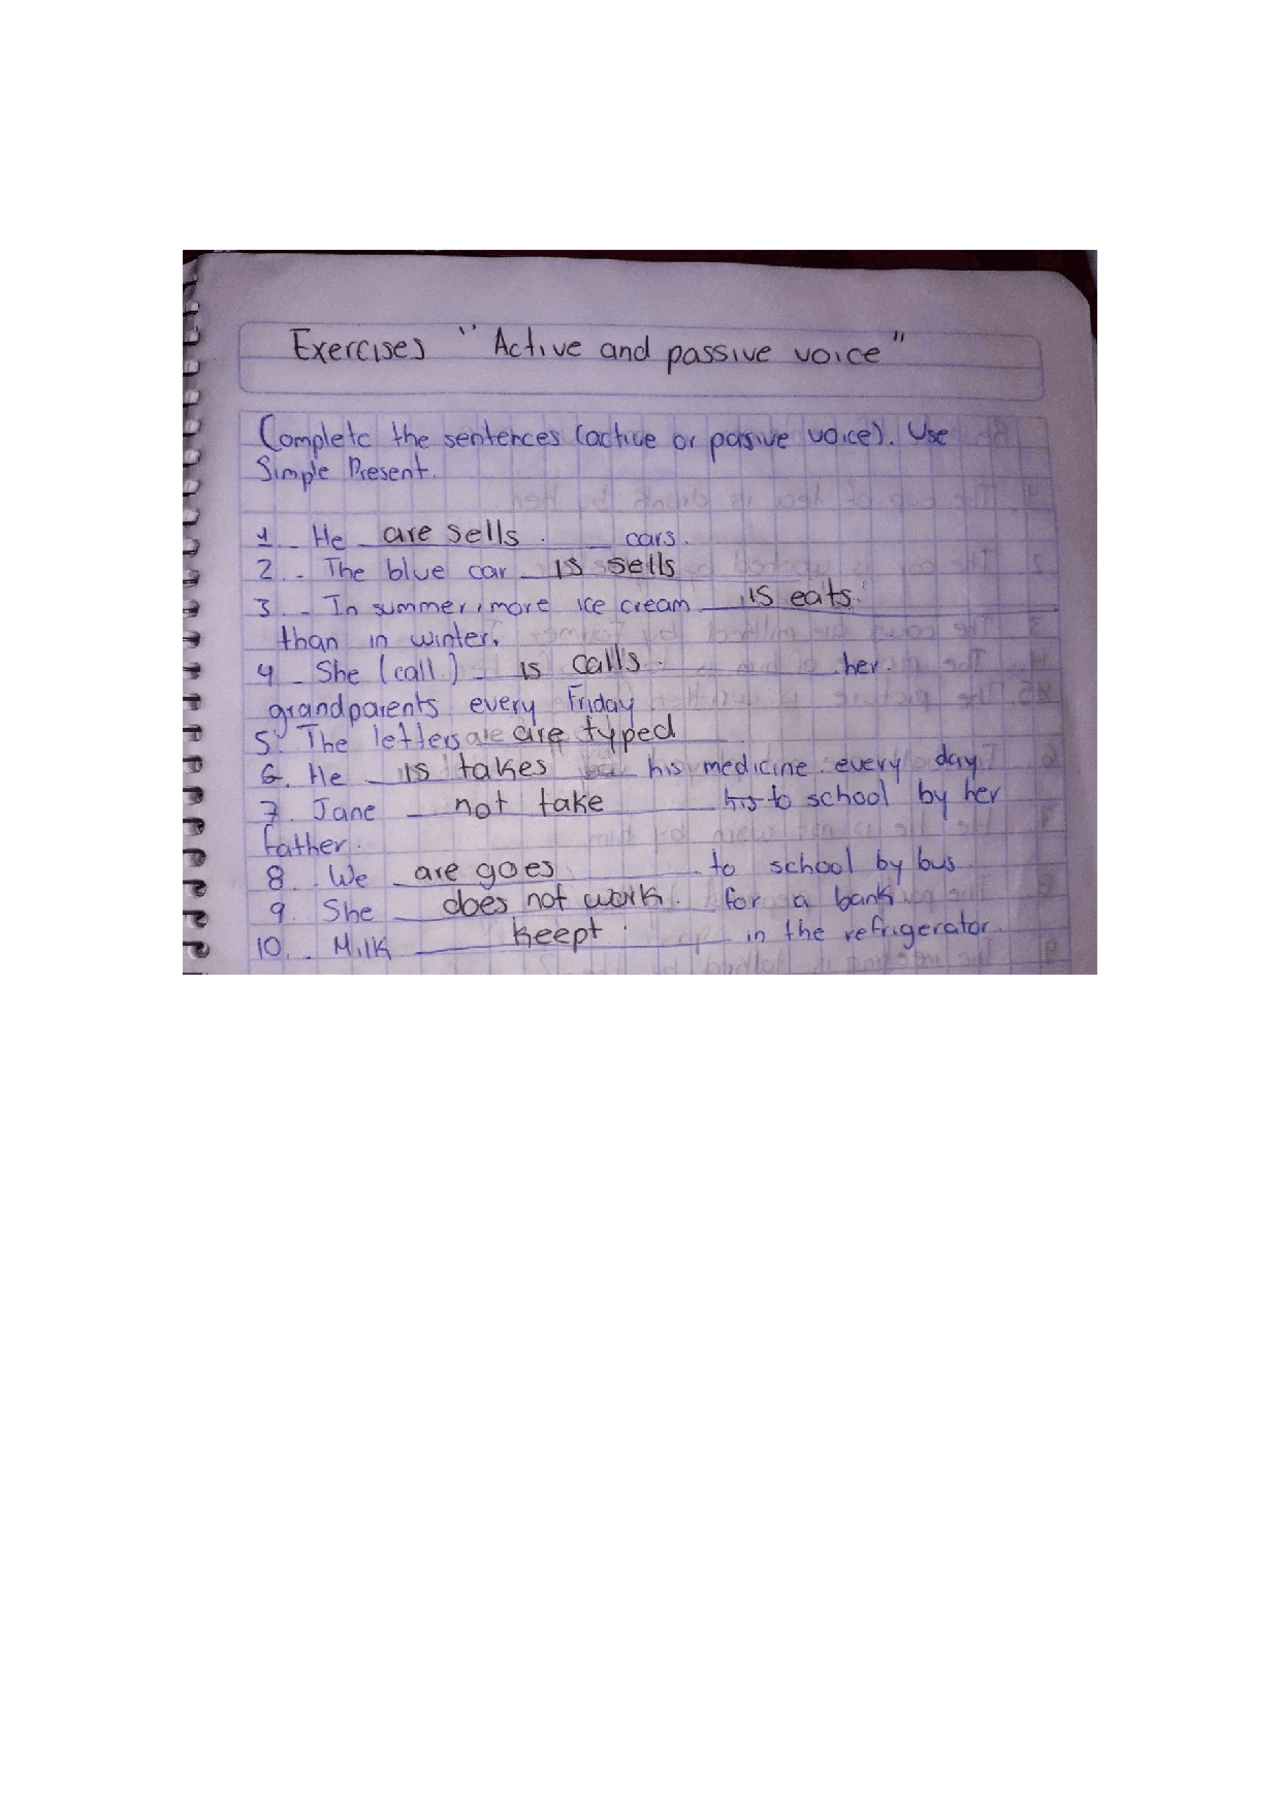 Exercises "Active and passive voice"
Complete the sentences (active or passive voice). Use
Simple Present.
1 - He are sells. cars.
2.- The blue car is sells
3.- In summer, more ice cream is eats.
than in winter.
4 - She (call) is calls. her
grandparents every Friday
5. The letters are are typed
6. He is takes his medicine every day
7. Jane not take his to school by her
father.
8. We are goes to school by bus
9. She does not work. for a bank
10.- Milk keept. in the refrigerator.